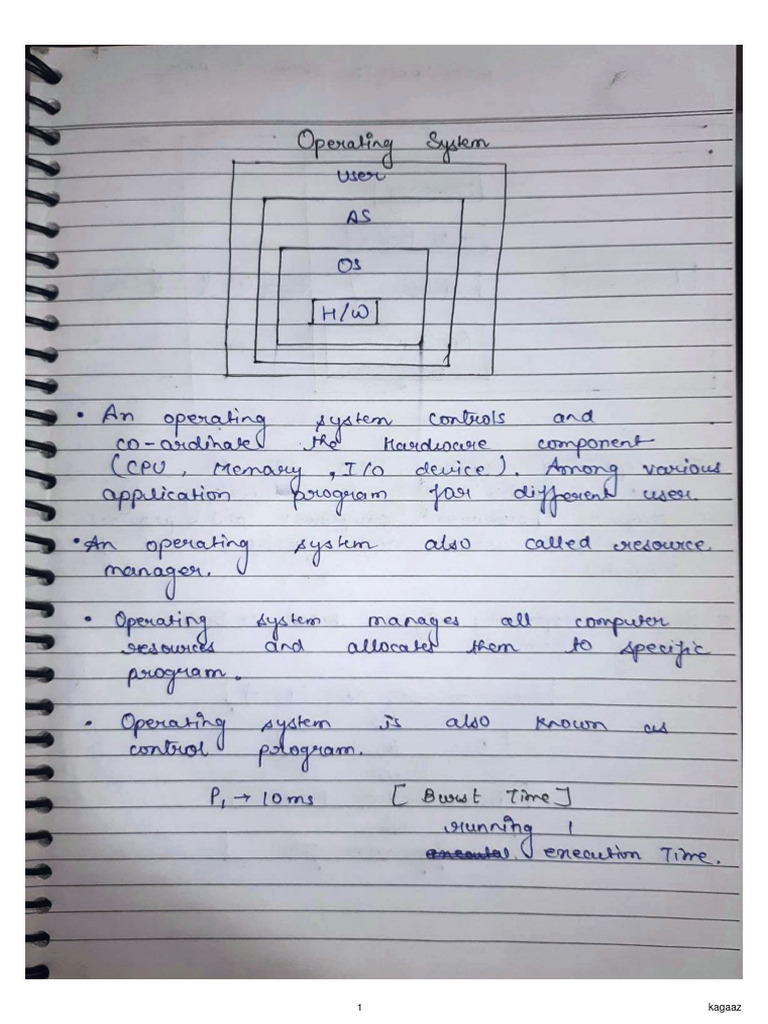 Operating System
User
AS
OS
H/W
• An operating system controls and
co-ordinate the Hardware component
(CPU, Memory, I/O device). Among various
application program for different user.
• An operating system also called resource
manager.
• Operating system manages all computer
resources and allocates them to specific
program.
• Operating system is also known as
control program.
P₁ → 10ms [Burst Time]
running /
execution Time.
1 kagaaz